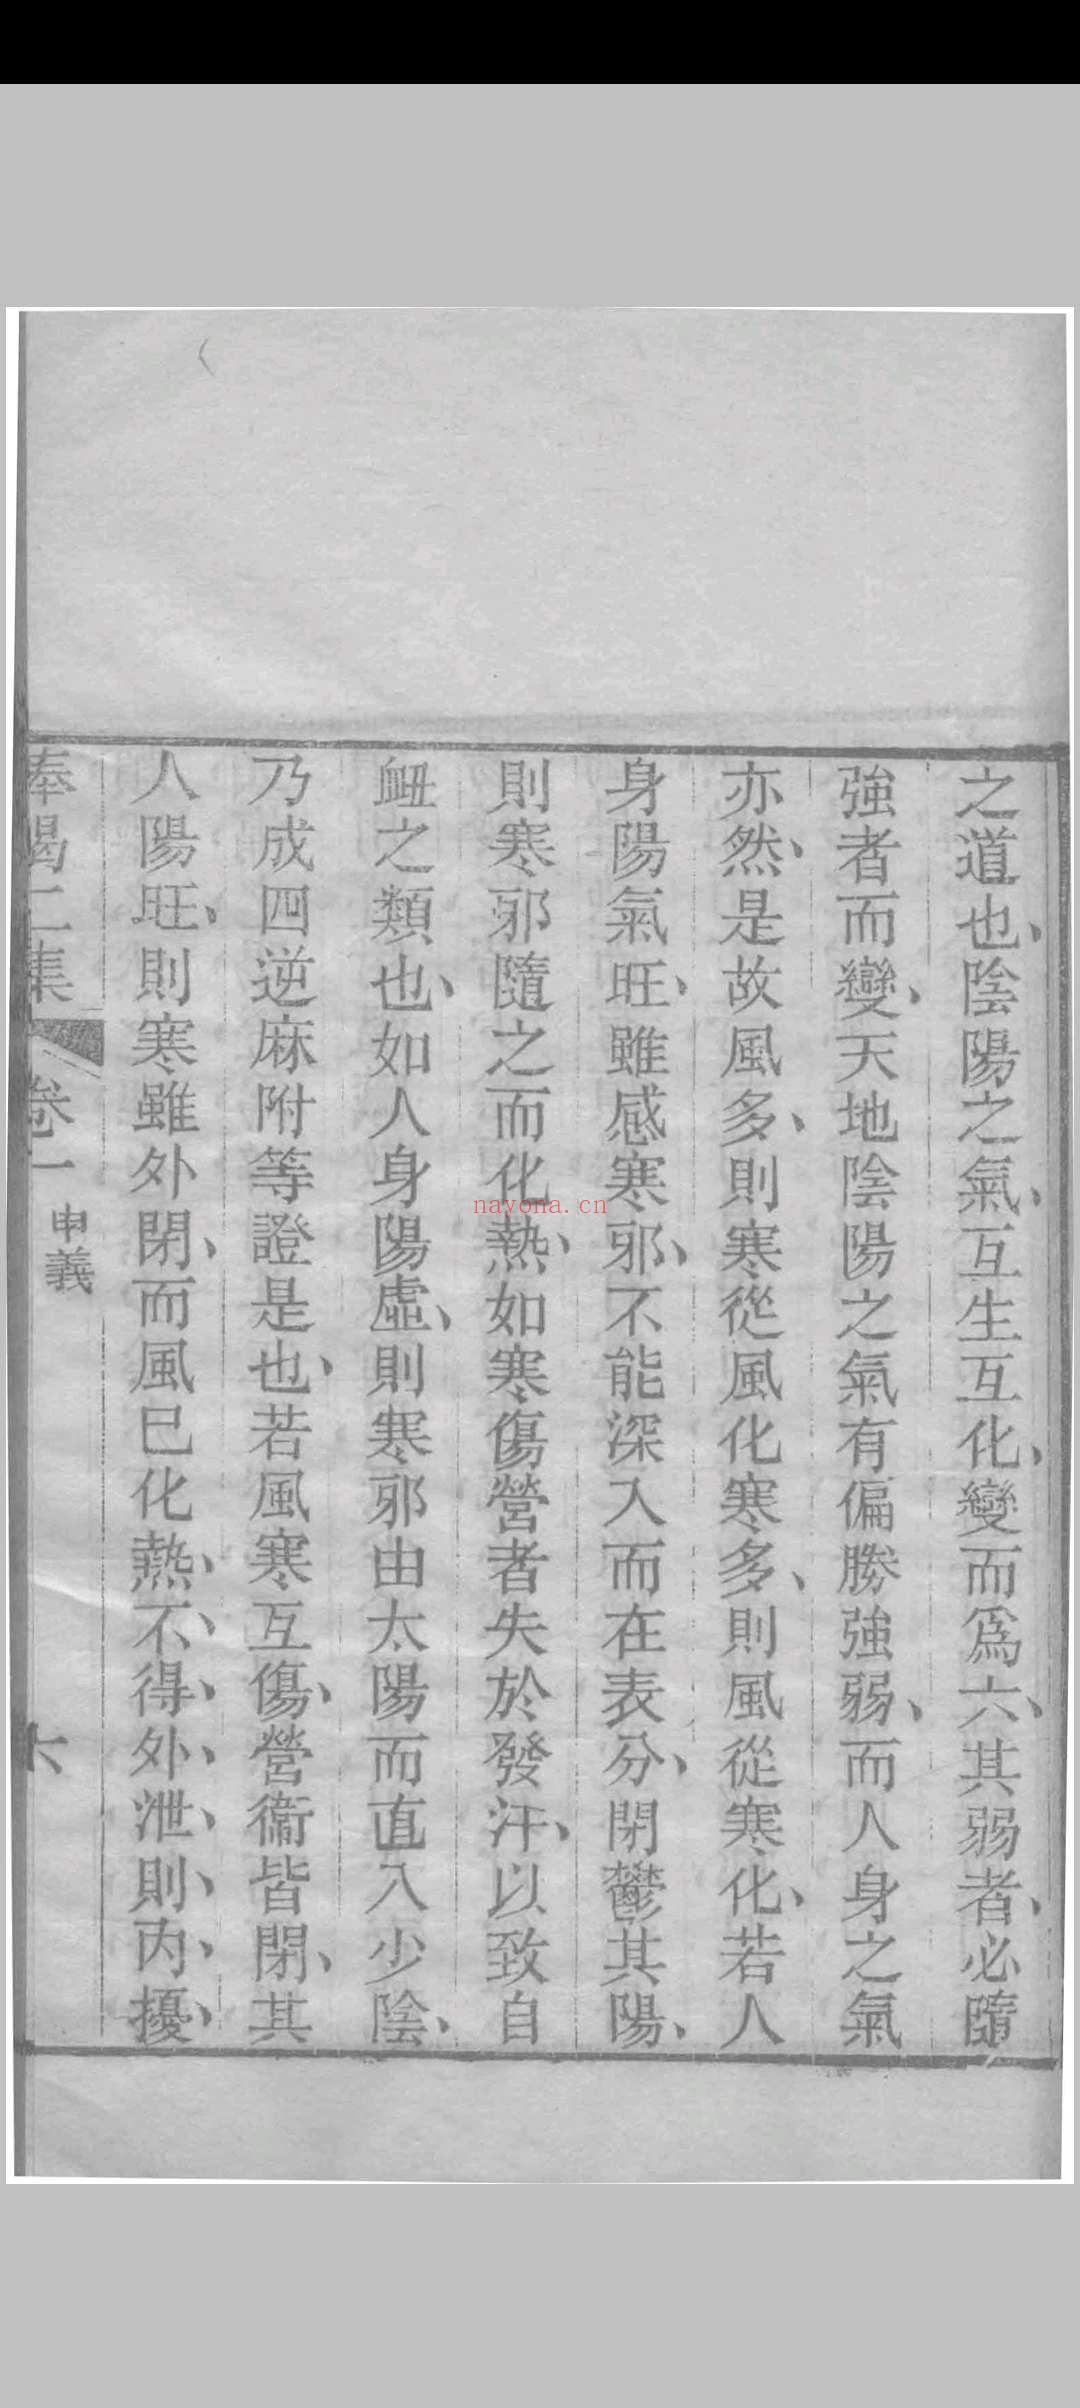 之道也、陰陽之氣、互生互化、變而爲六、其弱者、必隨
強者而變、天地陰陽之氣有偏勝強弱、而人身之氣
亦然、是故風多、則寒從風化寒多、則風從寒化、若人
身陽氣旺、雖感寒邪、不能深入而在表分、閉鬱其陽、
則寒邪隨之而化熱、如寒傷營者失於發汗、以致自
衄之類也、如人身陽虛、則寒邪由太陽而直入少陰、
乃成四逆麻附等證是也、若風寒互傷、營衞皆閉、其
人陽旺、則寒雖外閉、而風巳化熱、不、得、外、泄、則、內、擾、
卷一 申義
六
nayona.cn